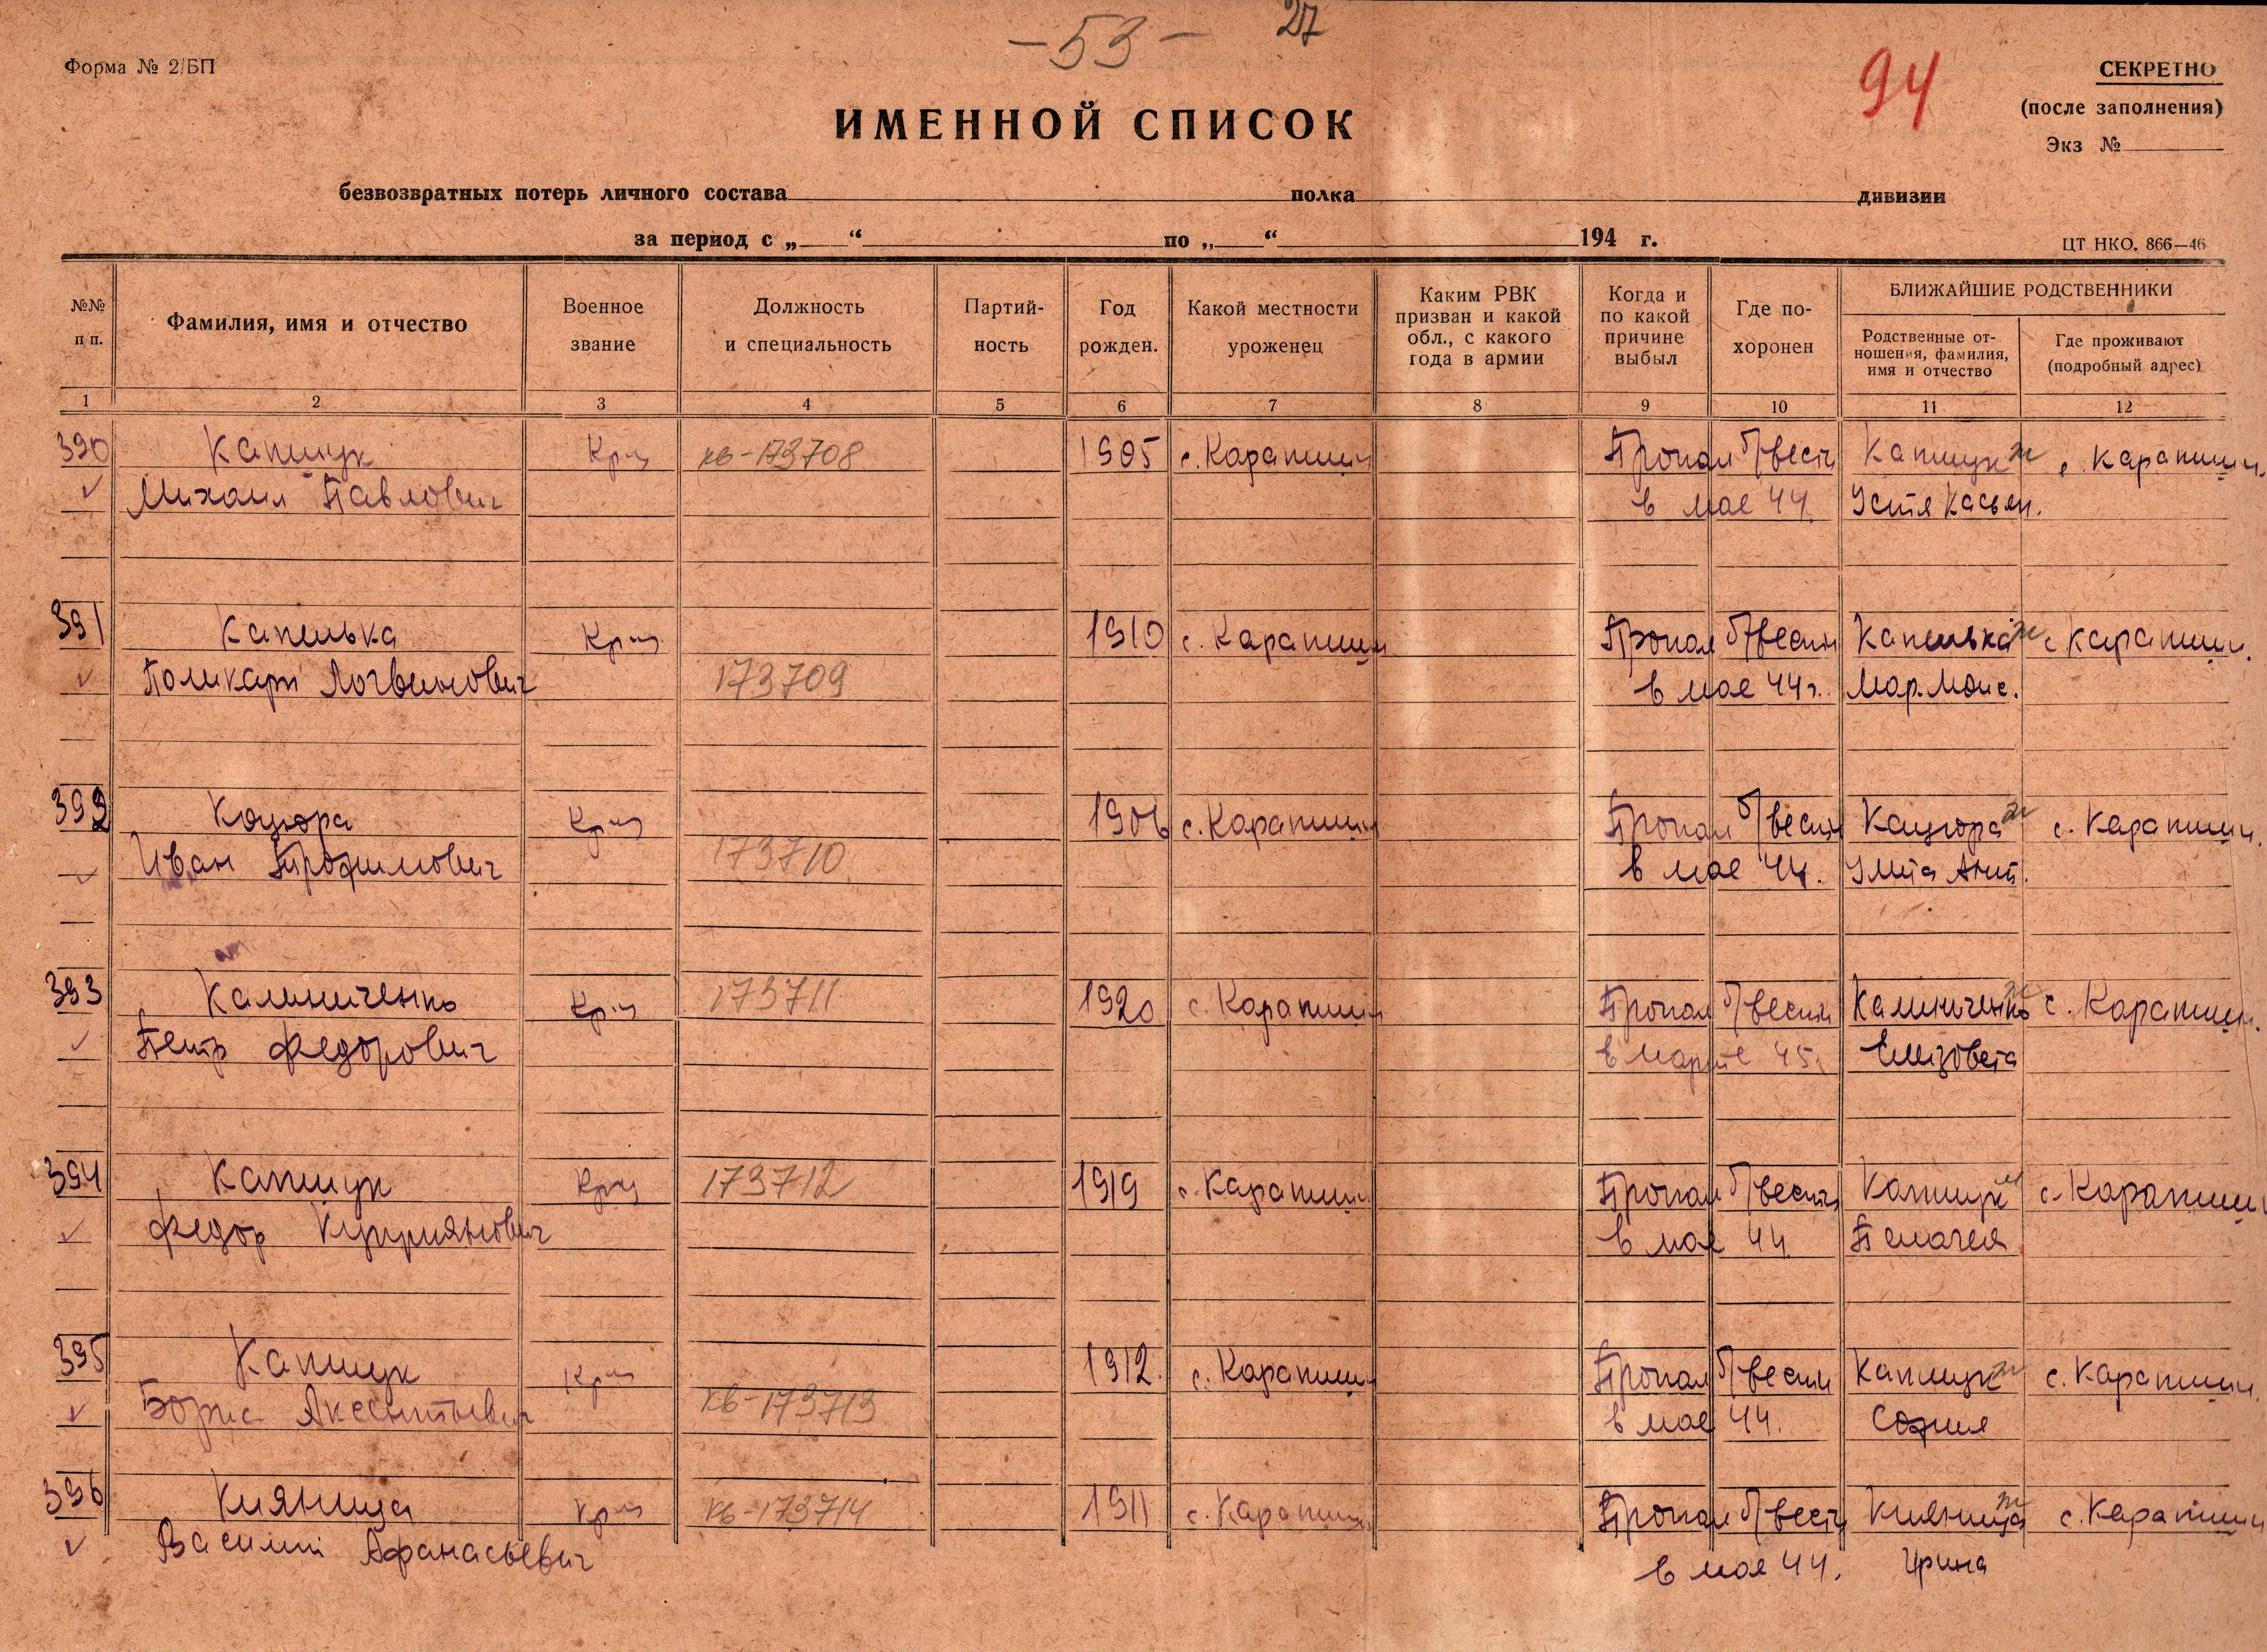 - 53 -
27
94
Форма № 2/БП
СЕКРЕТНО
(после заполнения)
Экз №
ИМЕННОЙ СПИСОК
безвозвратных потерь личного состава полка дивизии
за период с „ “ по „ “ 194 г.
ЦТ НКО. 866—46
№№ п/п.
Фамилия, имя и отчество
Военное звание
Должность и специальность
Партий-ность
Год рожден.
Какой местности уроженец
Каким РВК призван и какой обл., с какого года в армии
Когда и по какой причине выбыл
Где по-хоронен
БЛИЖАЙШИЕ РОДСТВЕННИКИ
Родственные от-ношения, фамилия, имя и отчество
Где проживают (подробный адрес)
1 2 3 4 5 6 7 8 9 10 11 12
390 Капшук Кр-ц кв-173708 1905 с. Карапиши Пропал б/вести Капшук ж с. Карапиши
Михаил Павлович в мае 44 Устя Касьян.
391 Капелька Кр-ц 1910 с. Карапиши Пропал б/вести Капелька ж с. Карапиши.
Поликарп Логвинович 173709 в мае 44 г. Мар. Моис.
392 Кацюра Кр-ц 1906 с. Карапиши Пропал б/вести Кацюра ж с. Карапиши.
Иван Трофимович 173710 в мае 44. Улита Ант.
393 Калиниченко Кр-ц 173711 1920 с. Карапиши Пропал б/вести Калиниченко ж с. Карапиши.
Петр Федорович в марте 45. Елизовета
394 Капшук Кр-ц 173712 1919 с. Карапиши Пропал б/вести Капшук м с. Карапиши
Федор Куприянович в мае 44 Пелагея
395 Капшук Кр-ц 1912. с. Карапиши Пропал б/вести Капшук ж с. Карапиши.
Борис Яксентьевич кв-173713 в мае 44. София
396 Кияница Кр-ц кв-173714 1911 с. Карапиши Пропал б/вести Кияница ж с. Карапиши
Василий Афанасьевич в мае 44. Ирина